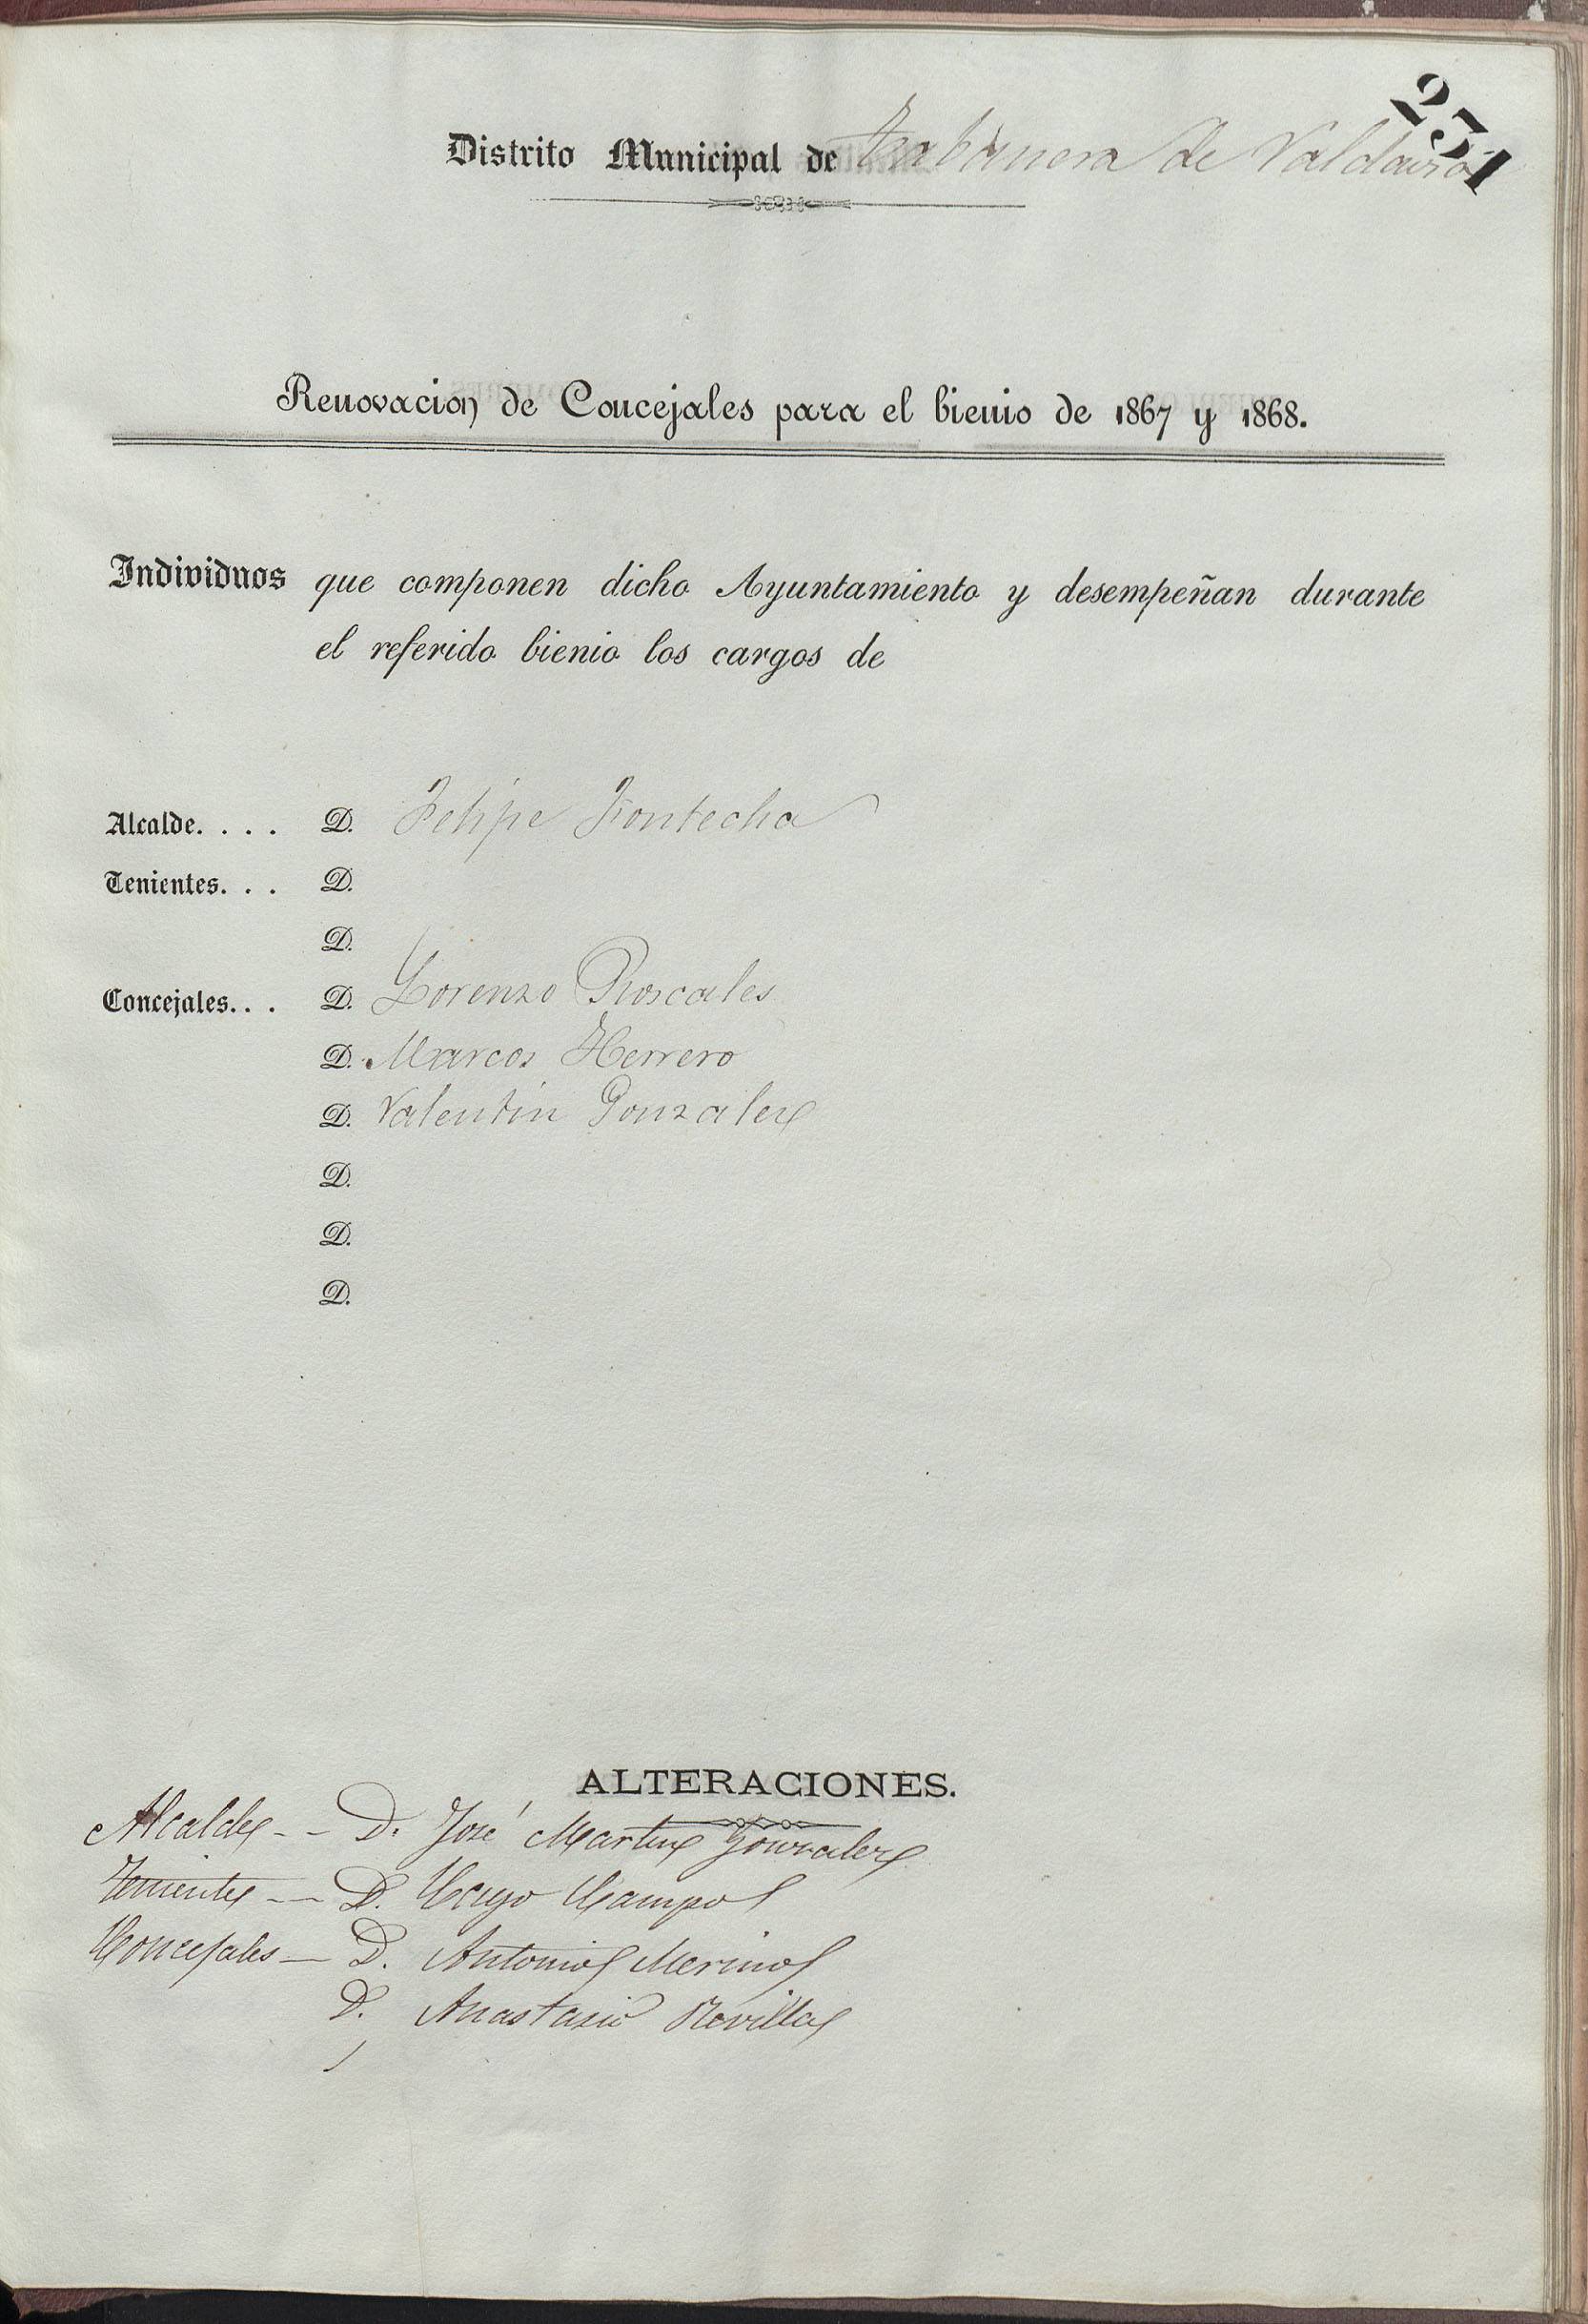 231
Distrito Municipal de Tabanera de Valdavia
Renovacion de Concejales para el bienio de 1867 y 1868.
Individuos que componen dicho Ayuntamiento y desempeñan durante
el referido bienio los cargos de
Alcalde. . . . D. Felipe Fontecha
Tenientes. . . D.
D.
Concejales. . . D. Lorenzo Roscales
D. Marcos Herrero
D. Valentin Gonzalez
D.
D.
D.
ALTERACIONES.
Alcalde -- D. José Martin Gonzalez
Teniente -- D. Campo
Concejales - D. Antonio Merino
D. Anastasio Revilla